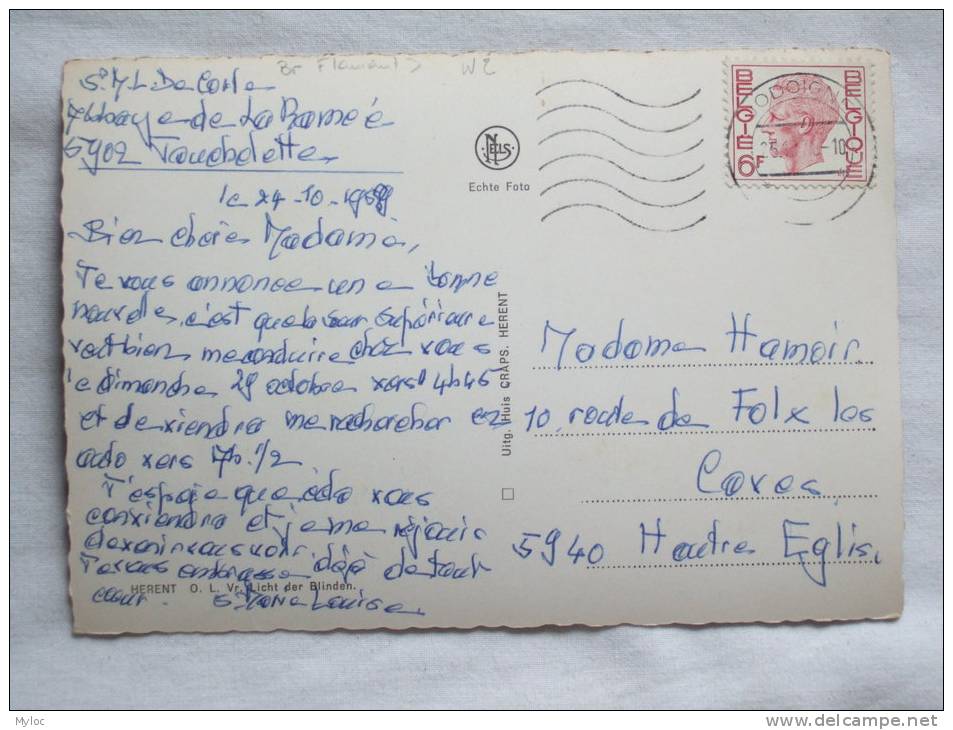 Br Flamant
W2
Sr M-L. De Corte
Abbaye de La Ramée
5902 Jauchelette
le 24-10-
Bien chère Madame,
Je vous annonce une bonne
nouvelle, c'est que la Sœur Supérieure
veut bien me conduire chez vous
le dimanche 29 octobre vers 4h45
et de viendra me rechercher
vers 7h. 1/2
J'espère que cela vous
conviendra et je me réjouis
de venir vous voir
Je vous embrasse déjà de tout
cœur. Sr Marie Louise
HERENT O. L. Vr. Licht der Blinden.
NELS
Echte Foto
Uitg. Huis CRAPS. HERENT
BELGIE
BELGIQUE
6F
JODOIGNE
Madame Hamoir
10, route de Folx les
Caves,
5940 Hautre Eglis.
Myloc
www.delcampe.net